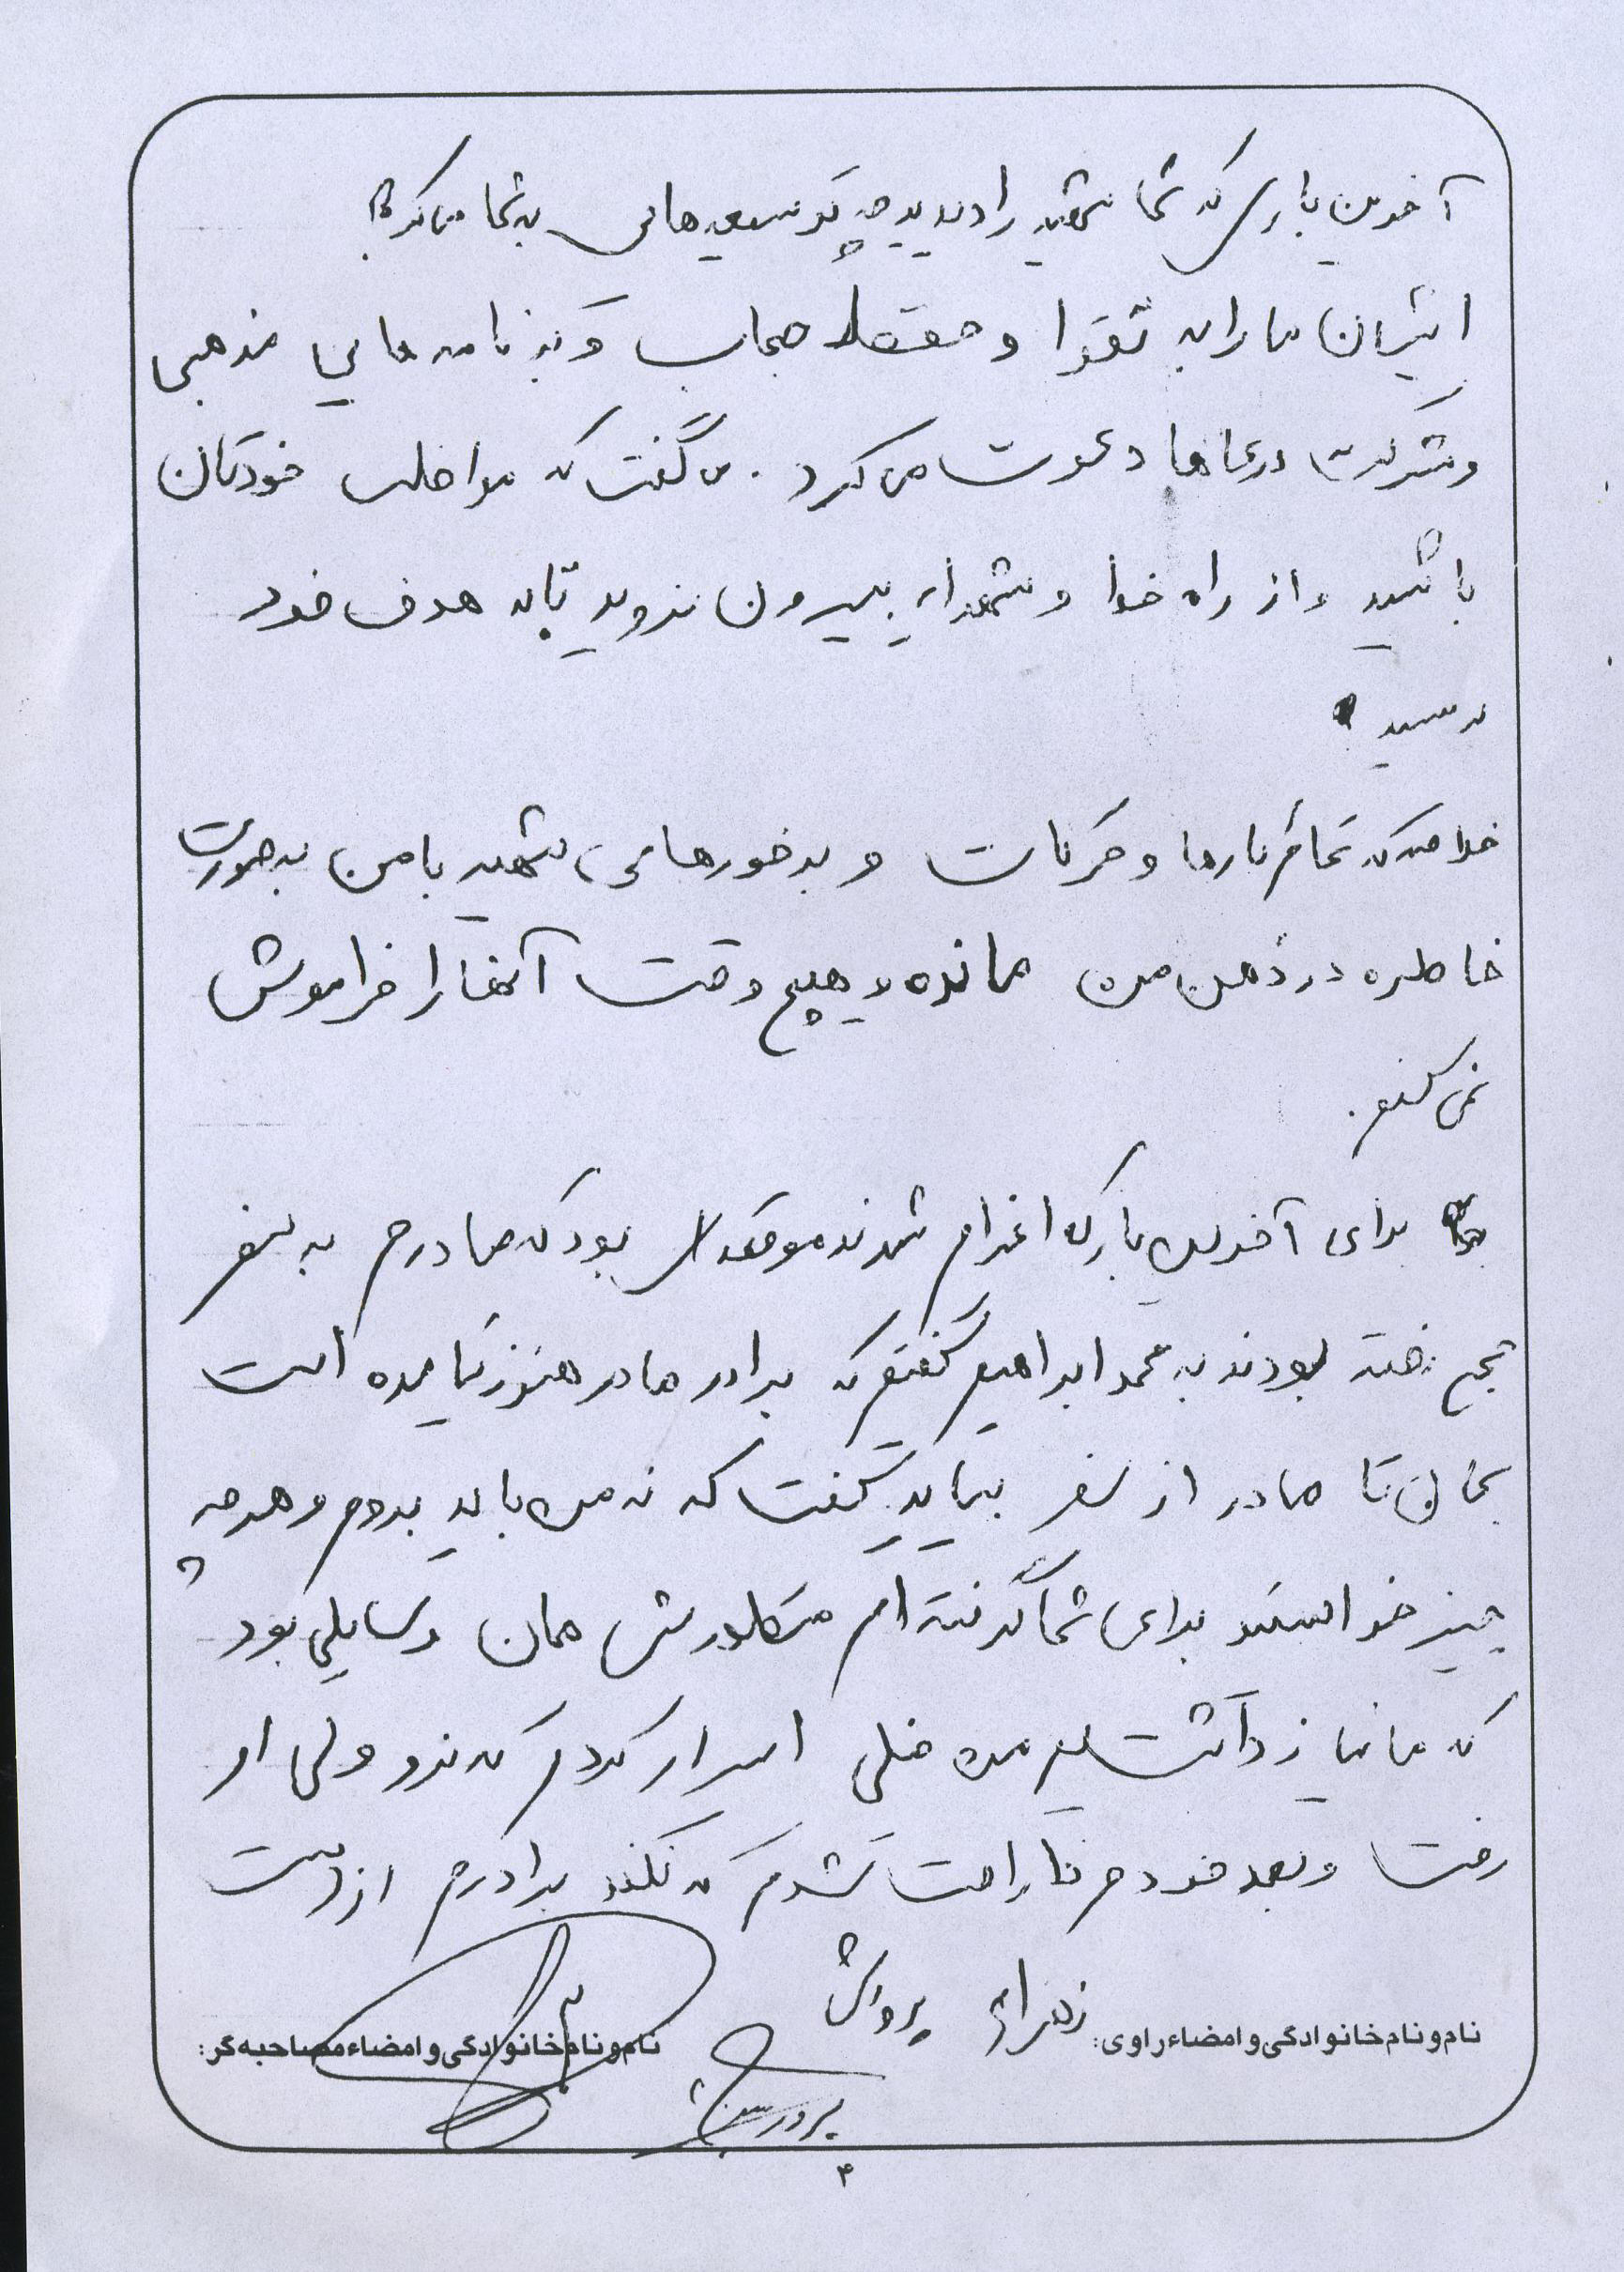 آخرین باری که شما شهید را دیدید چه توصیه هایی به شما می کرد؟
ایشان ما را به تقوا و حفظ حجاب و برنامه هایی مذهبی
و شرکت در دعاها دعوت می کرد . می گفت که مواظب خودتان
باشید و از راه خدا و شهدا بیرون نروید تا به هدف خود
برسید .
خلاصه که تمام کارها و حرکات و برخوردهای شهید با من به صورت
خاطره در ذهن من مانده و هیچ وقت آنها را فراموش
نمی کنم .
برای آخرین بار که اعزام شدند موقعه ای بود که مادرم به سفر
حج رفته بودند به محمد ابراهیم گفتم که برادر مادر هنوز نیامده است
بمان تا مادر از سفر بیاید گفت که نه من باید بروم و هر چه
چیز خواستند برای شما گرفته ام منظورش همان وسایلی بود
که ما نیاز داشتیم من خیلی اسرار کردم که نرو ولی او
رفت و بعد خودم ناراحت شدم که نکند برادرم از دست
نام و نام خانوادگی و امضاء راوی: زهرا پرورش
نام و نام خانوادگی و امضاء مصاحبه گر:
پرورش
۴